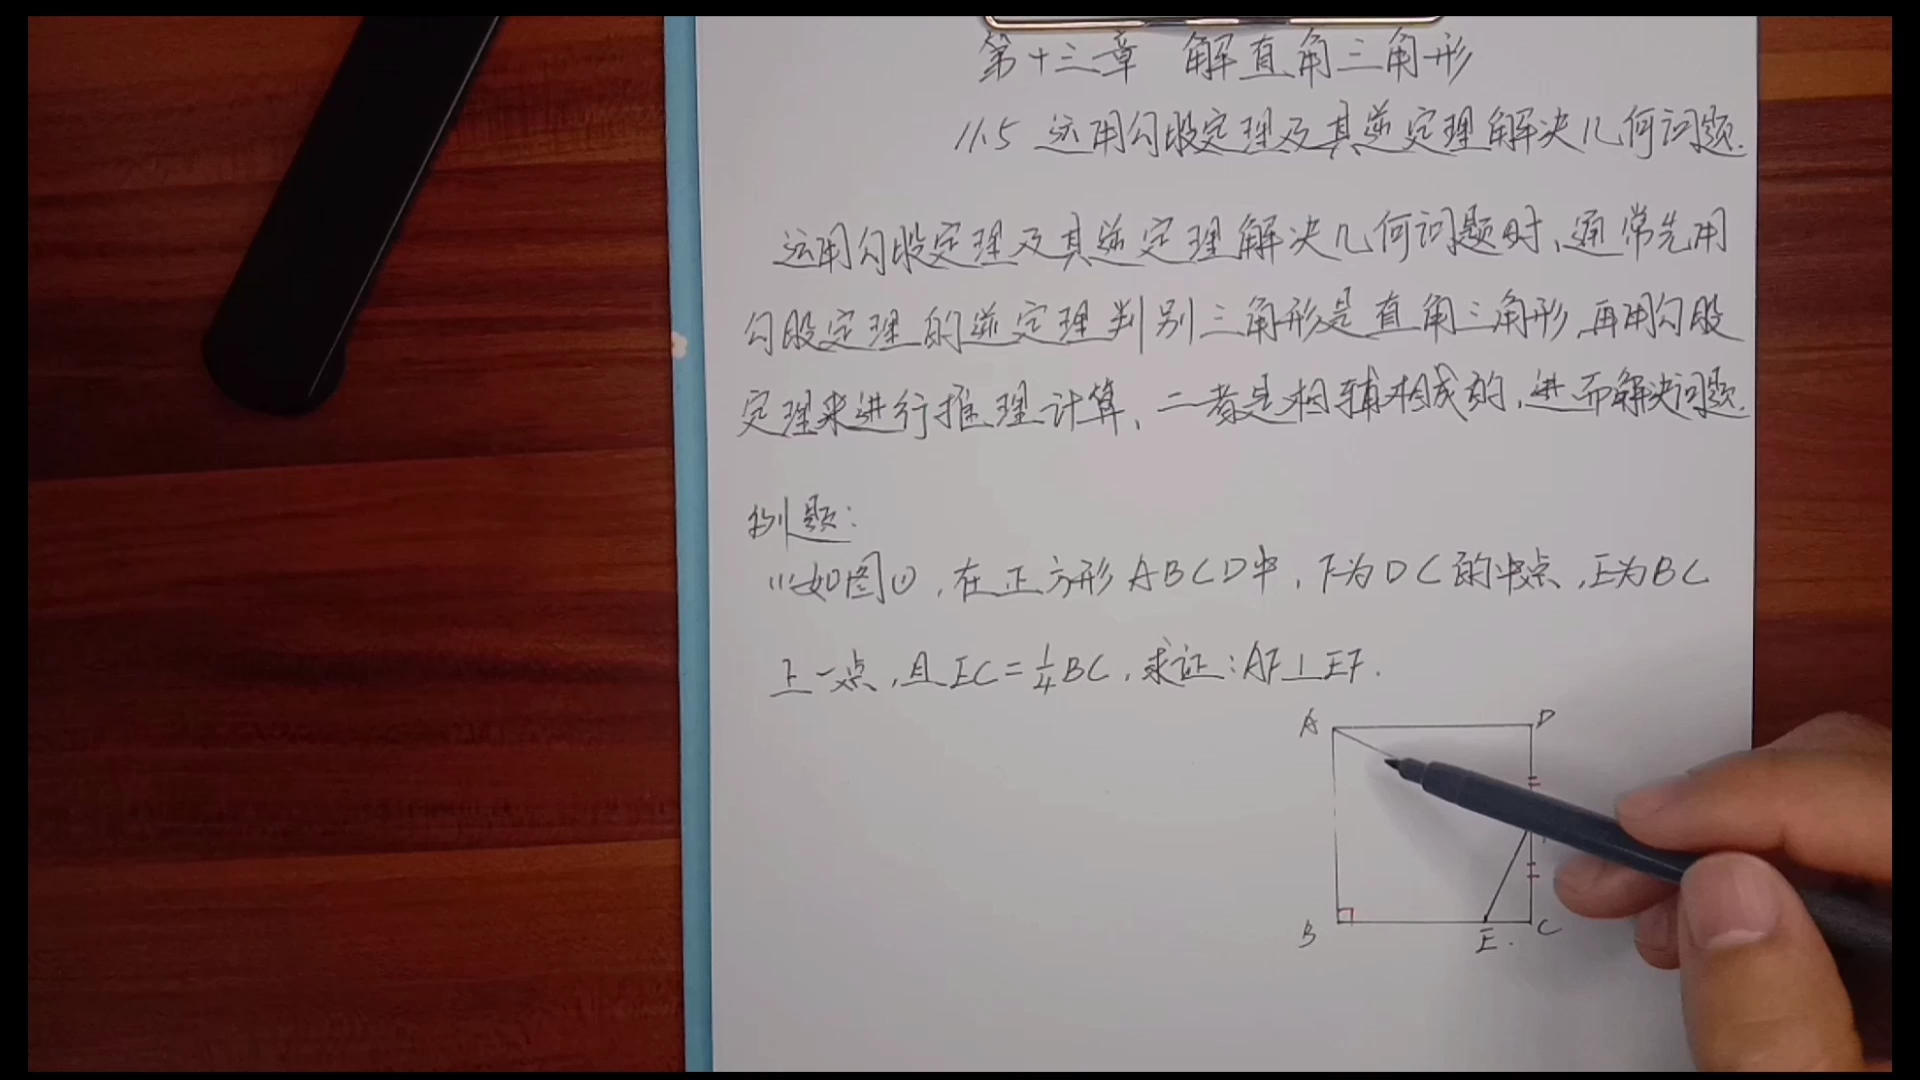 第十三章 解直角三角形
11.5 运用勾股定理及其逆定理解决几何问题.
运用勾股定理及其逆定理解决几何问题时、通常先用
勾股定理的逆定理判别三角形是直角三角形,再用勾股
定理来进行推理计算、二者是相辅相成的,进而解决问题.
例题:
(1)如图①,在正方形ABCD中,F为DC的中点,E为BC
上一点,且EC=1/4BC,求证:AF⊥EF.
A D
B E. C